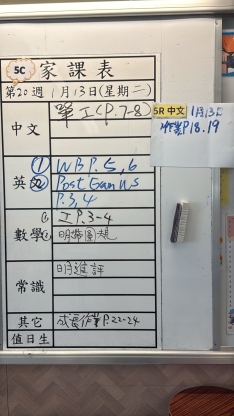 5C 家課表
第20週 1月13日(星期二)
中文 單工(P.7-8)
5R 中文 1月13日
作業P18.19
英文 ① WB P.5, 6
② Post Exam WS
P.3, 4
數學 ① 工P.3-4
② 明帶圓規
常識 明進評
其它 成長作業P.22-24
值日生